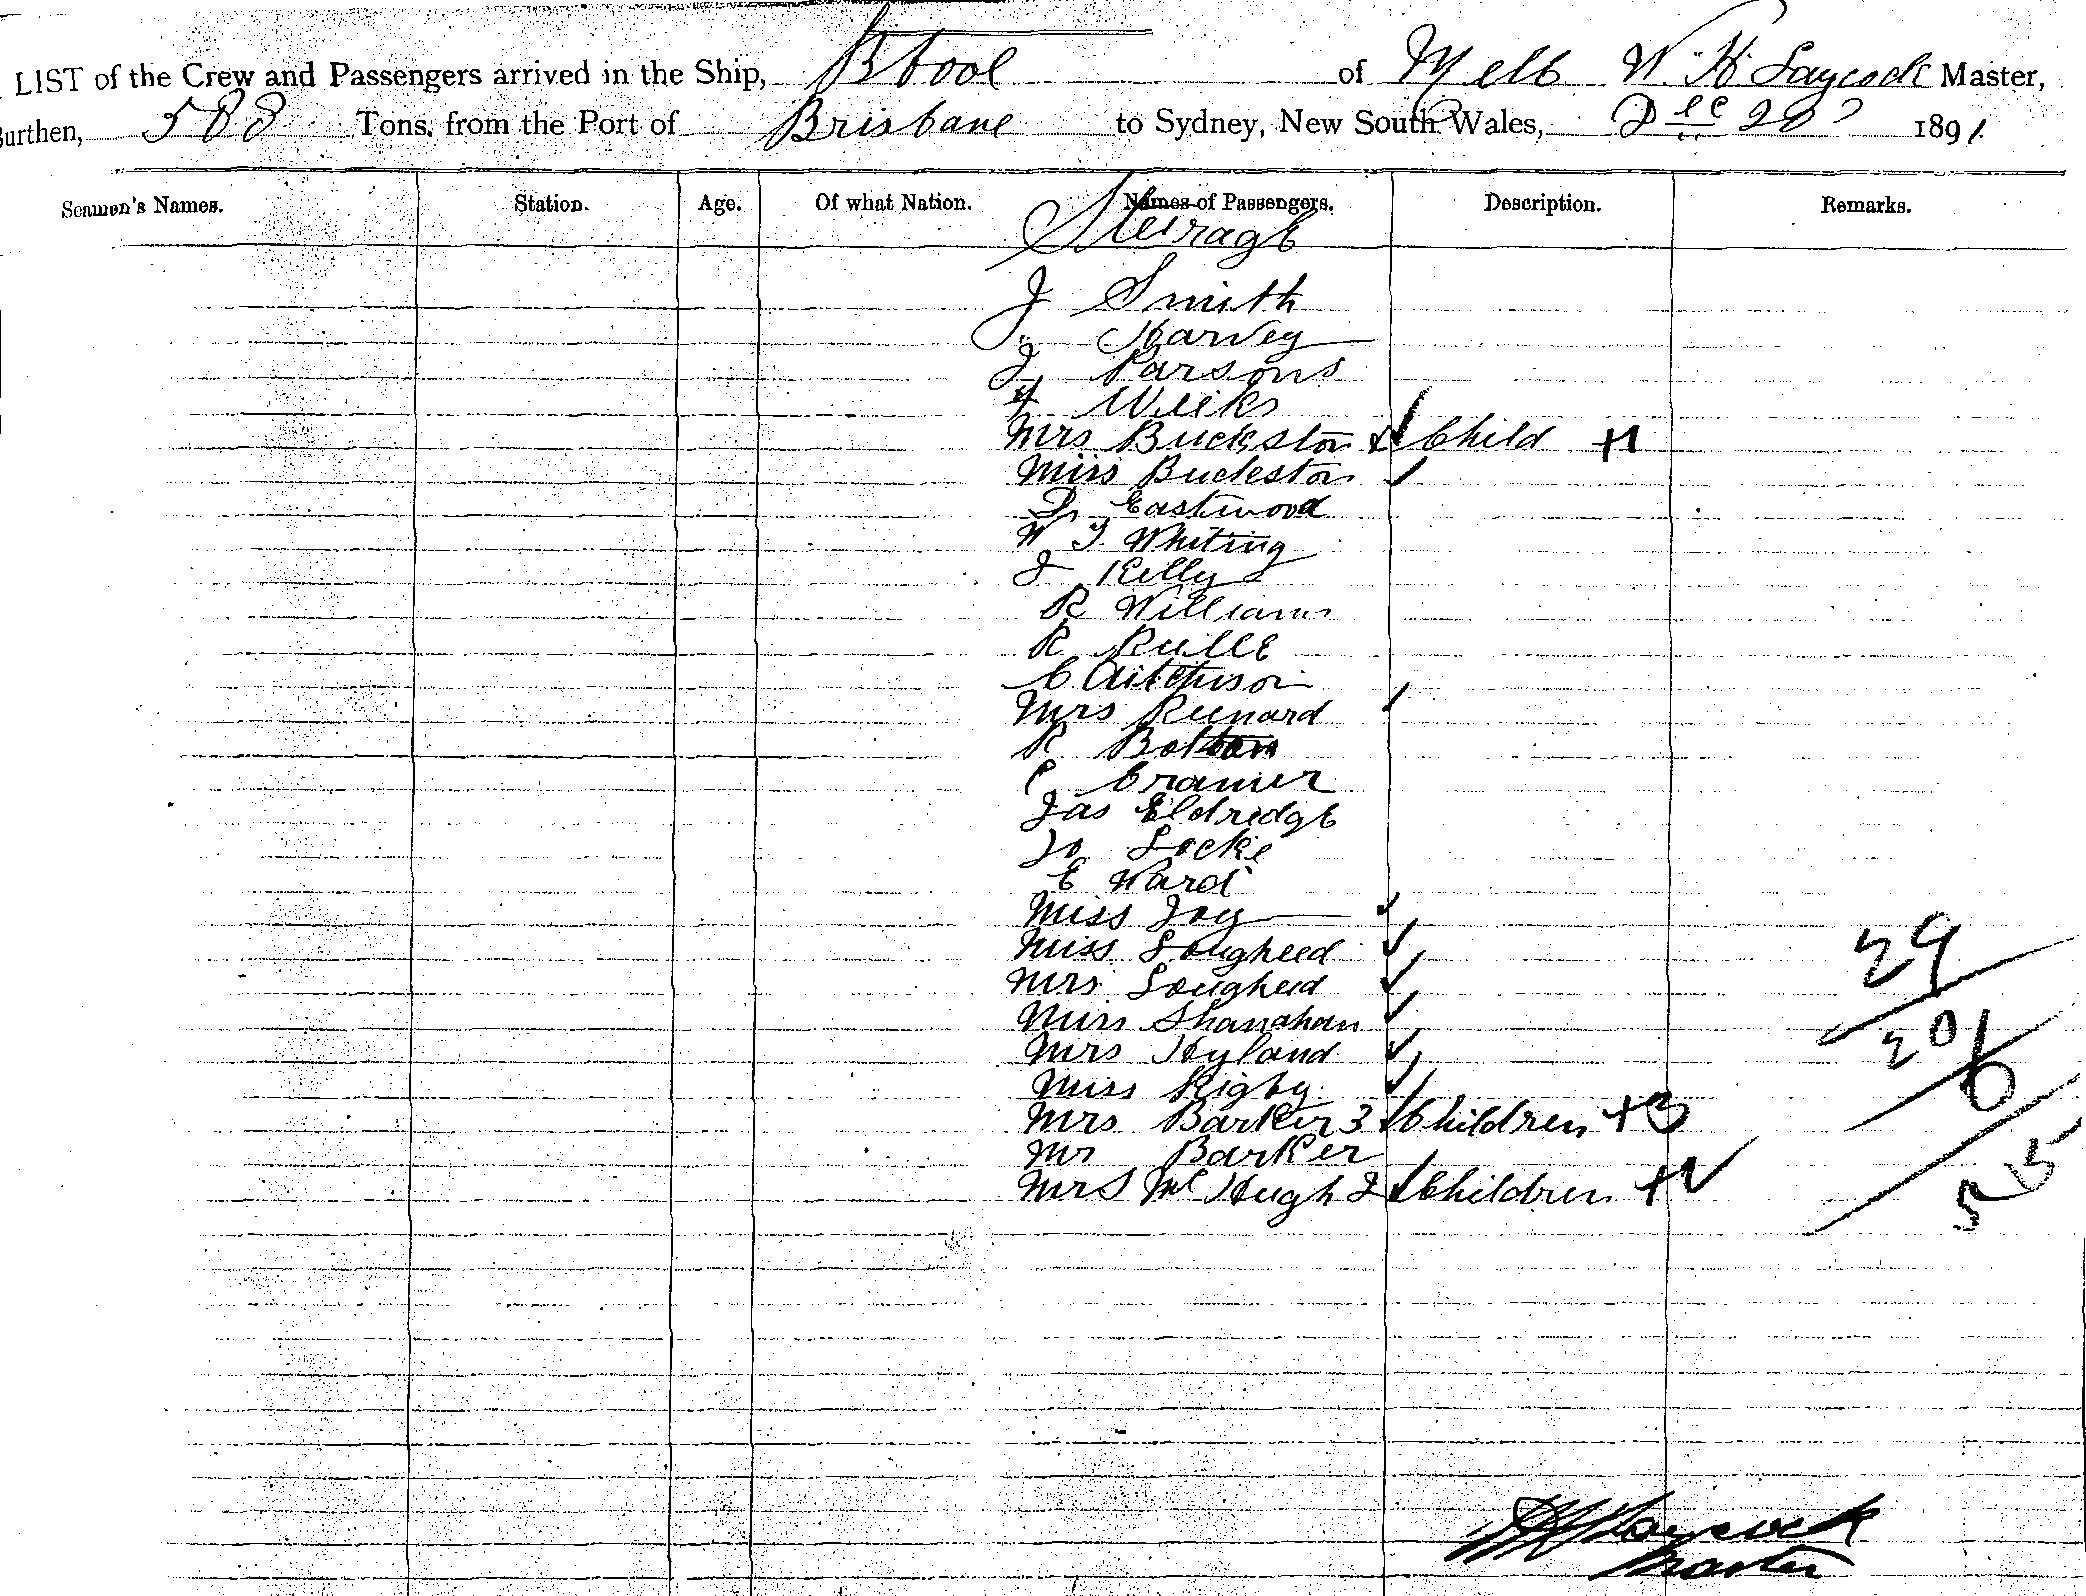 LIST of the Crew and Passengers arrived in the Ship, Btool of Melb W. H Laycock Master,
Burthen, 588 Tons, from the Port of Brisbane to Sydney, New South Wales, Dec 28 1891
Seamen's Names. Station. Age. Of what Nation. Names of Passengers. Description. Remarks.
Steerage
J Smith
" Harvey
J Parsons
Weeks
Mrs Buckston & Child +1
Miss Buckston
Eastwood
W J Whiting
J Kelly
R Williams
R Rulle
C Aitchison
Mrs Rennard
R Bolton
C Cramer
Jas Eldridge
Jo Locke
E Ward
Miss Joy
Miss Lougheed 29
Mrs Lougheed
Miss Shanahan
Mrs Hyland 20/6
Miss Rigby
Mrs Barker 3 Children +3
Mr Barker
Mrs McHugh 2 Children +2
W H Laycock
Master